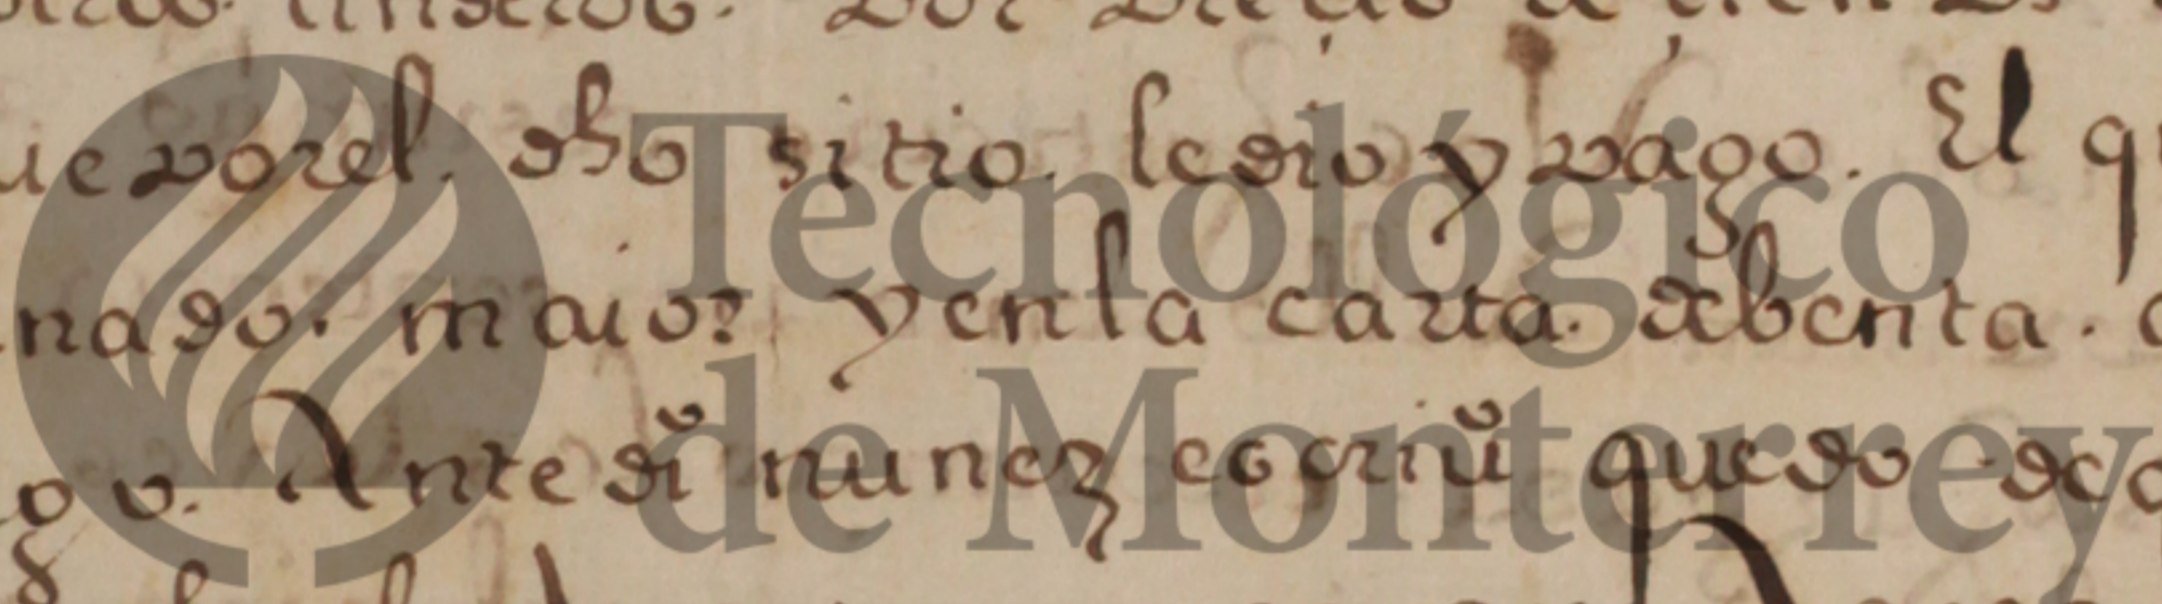 ue porel. dho sitio. ledio y pago. El q
nado. maior yenla carta. debenta.
go. Ante di° nunez escriu° quedo
Tecnológico
de Monterrey